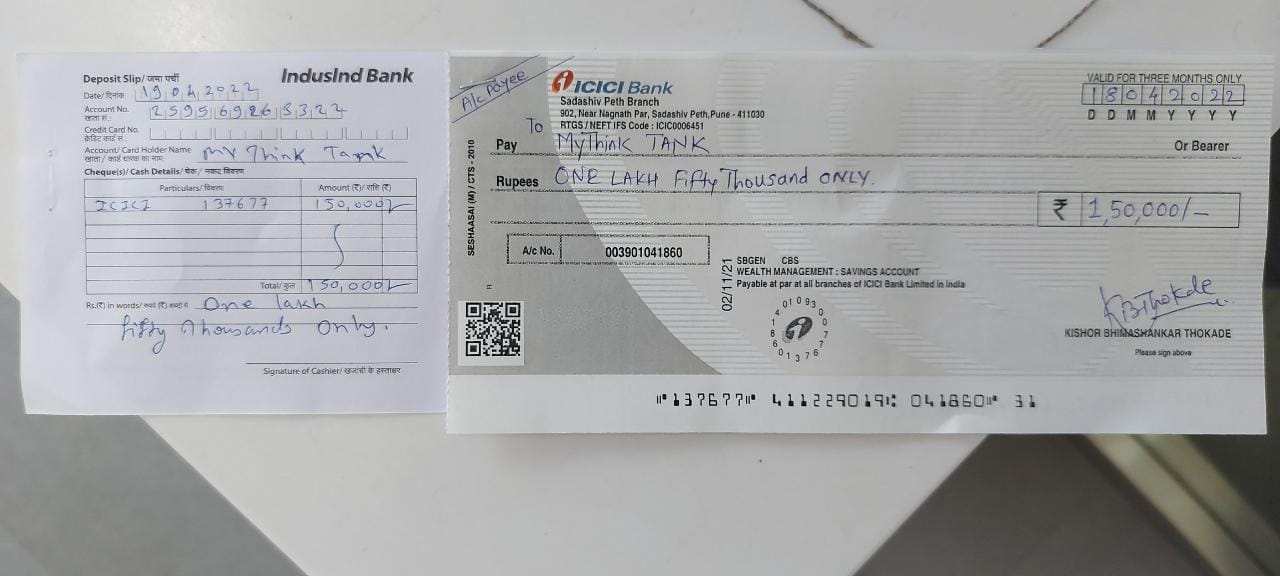 Deposit Slip/ जमा पर्ची
IndusInd Bank
Date/ दिनांक 19042022
Account No. 259569263322
खाता सं.:
Credit Card No.
क्रेडिट कार्ड सं.
Account/ Card Holder Name My Think Tank
खाता / कार्ड धारक का नाम
Cheque(s)/ Cash Details/ चेक/ नकद विवरण
Particulars/ विवरण Amount (₹)/ राशि (₹)
ICICI 137677 150,000/-
Total/ कुल 150,000/-
Rs.(₹) in words/ रुपये (₹) शब्दों में One lakh
fifty Thousands Only.
Signature of Cashier/ खजांची के हस्ताक्षर
A/c Payee
ICICI Bank
Sadashiv Peth Branch
902, Near Nagnath Par, Sadashiv Peth,Pune - 411030
RTGS / NEFT IFS Code : ICIC0006451
VALID FOR THREE MONTHS ONLY
18042022
D D M M Y Y Y Y
To
Pay MyThink TANK Or Bearer
Rupees ONE LAKH Fifty Thousand ONLY.
₹ 1,50,000/-
A/c No. 003901041860
SESHAASAI (M) / CTS - 2010
02/11/21
SBGEN CBS
WEALTH MANAGEMENT : SAVINGS ACCOUNT
Payable at par at all branches of ICICI Bank Limited in India
KBThokade
KISHOR BHIMASHANKAR THOKADE
Please sign above
R
⑈137677⑈ 411229019⑆ 041860⑈ 31